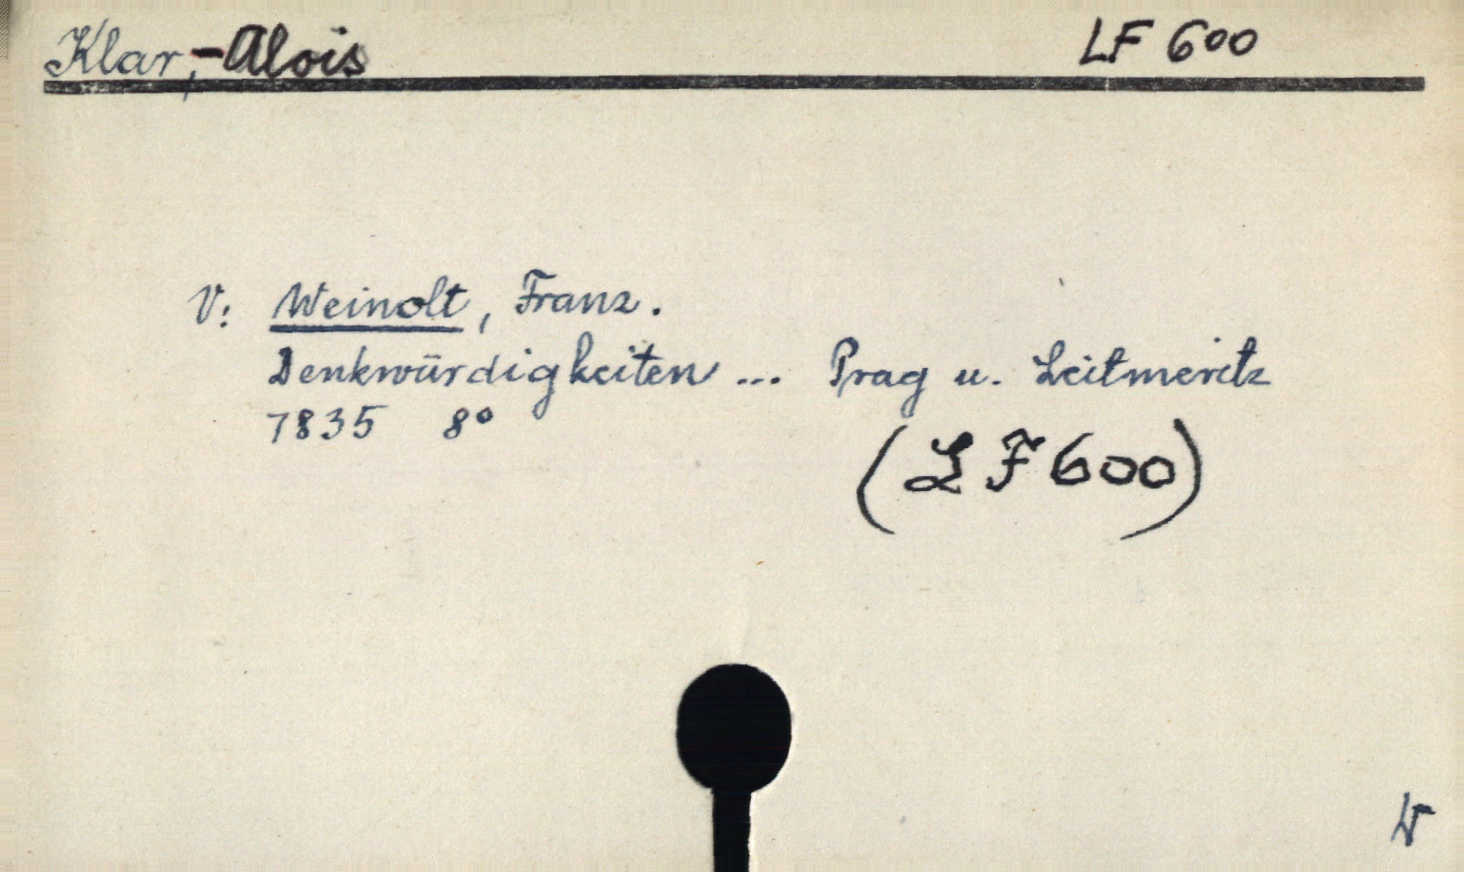 Klar,-Alois LF 600
V: Weinolt, Franz.
Denkwürdigkeiten ... Prag u. Leitmeritz
1835 8°
(LF 600)
W